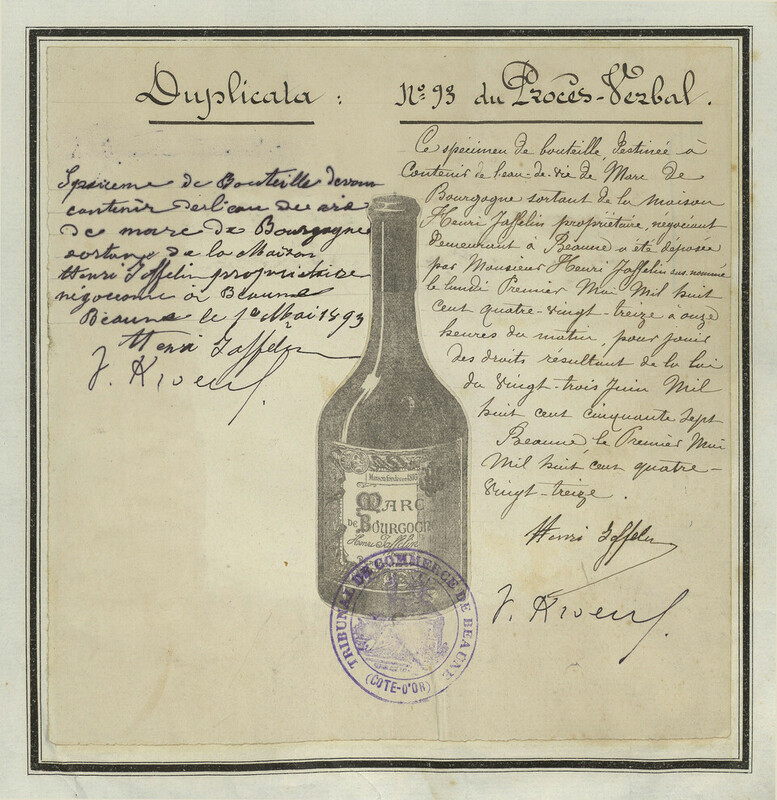 Duplicata :
No 93 du Procès-Verbal.
Speciemen de Bouteille devant
contenir de l'eau de vie
de marc de Bourgogne
sortant de la Maison
Henri Jaffelin propriétaire
négociant à Beaune
Beaune le 1er Mai 1893
Henri Jaffelin
Ce specimen de bouteille destinée à
contenir de l'eau-de-vie de Marc de
Bourgogne sortant de la maison
Henri Jaffelin propriétaire, négociant
demeurant à Beaune a été déposée
par Monsieur Henri Jaffelin sus-nommé
le lundi Premier Mai Mil huit
cent quatre-vingt-treize à onze
heures du matin, pour jouir
des droits résultant de la loi
du vingt-trois Juin Mil
huit cent cinquante sept
Beaune le Premier Mai
Mil huit cent quatre-
vingt-treize.
Henri Jaffelin
MARC
DE BOURGOGNE
Henri Jaffelin
TRIBUNAL DE COMMERCE DE BEAUNE
(COTE-D'OR)